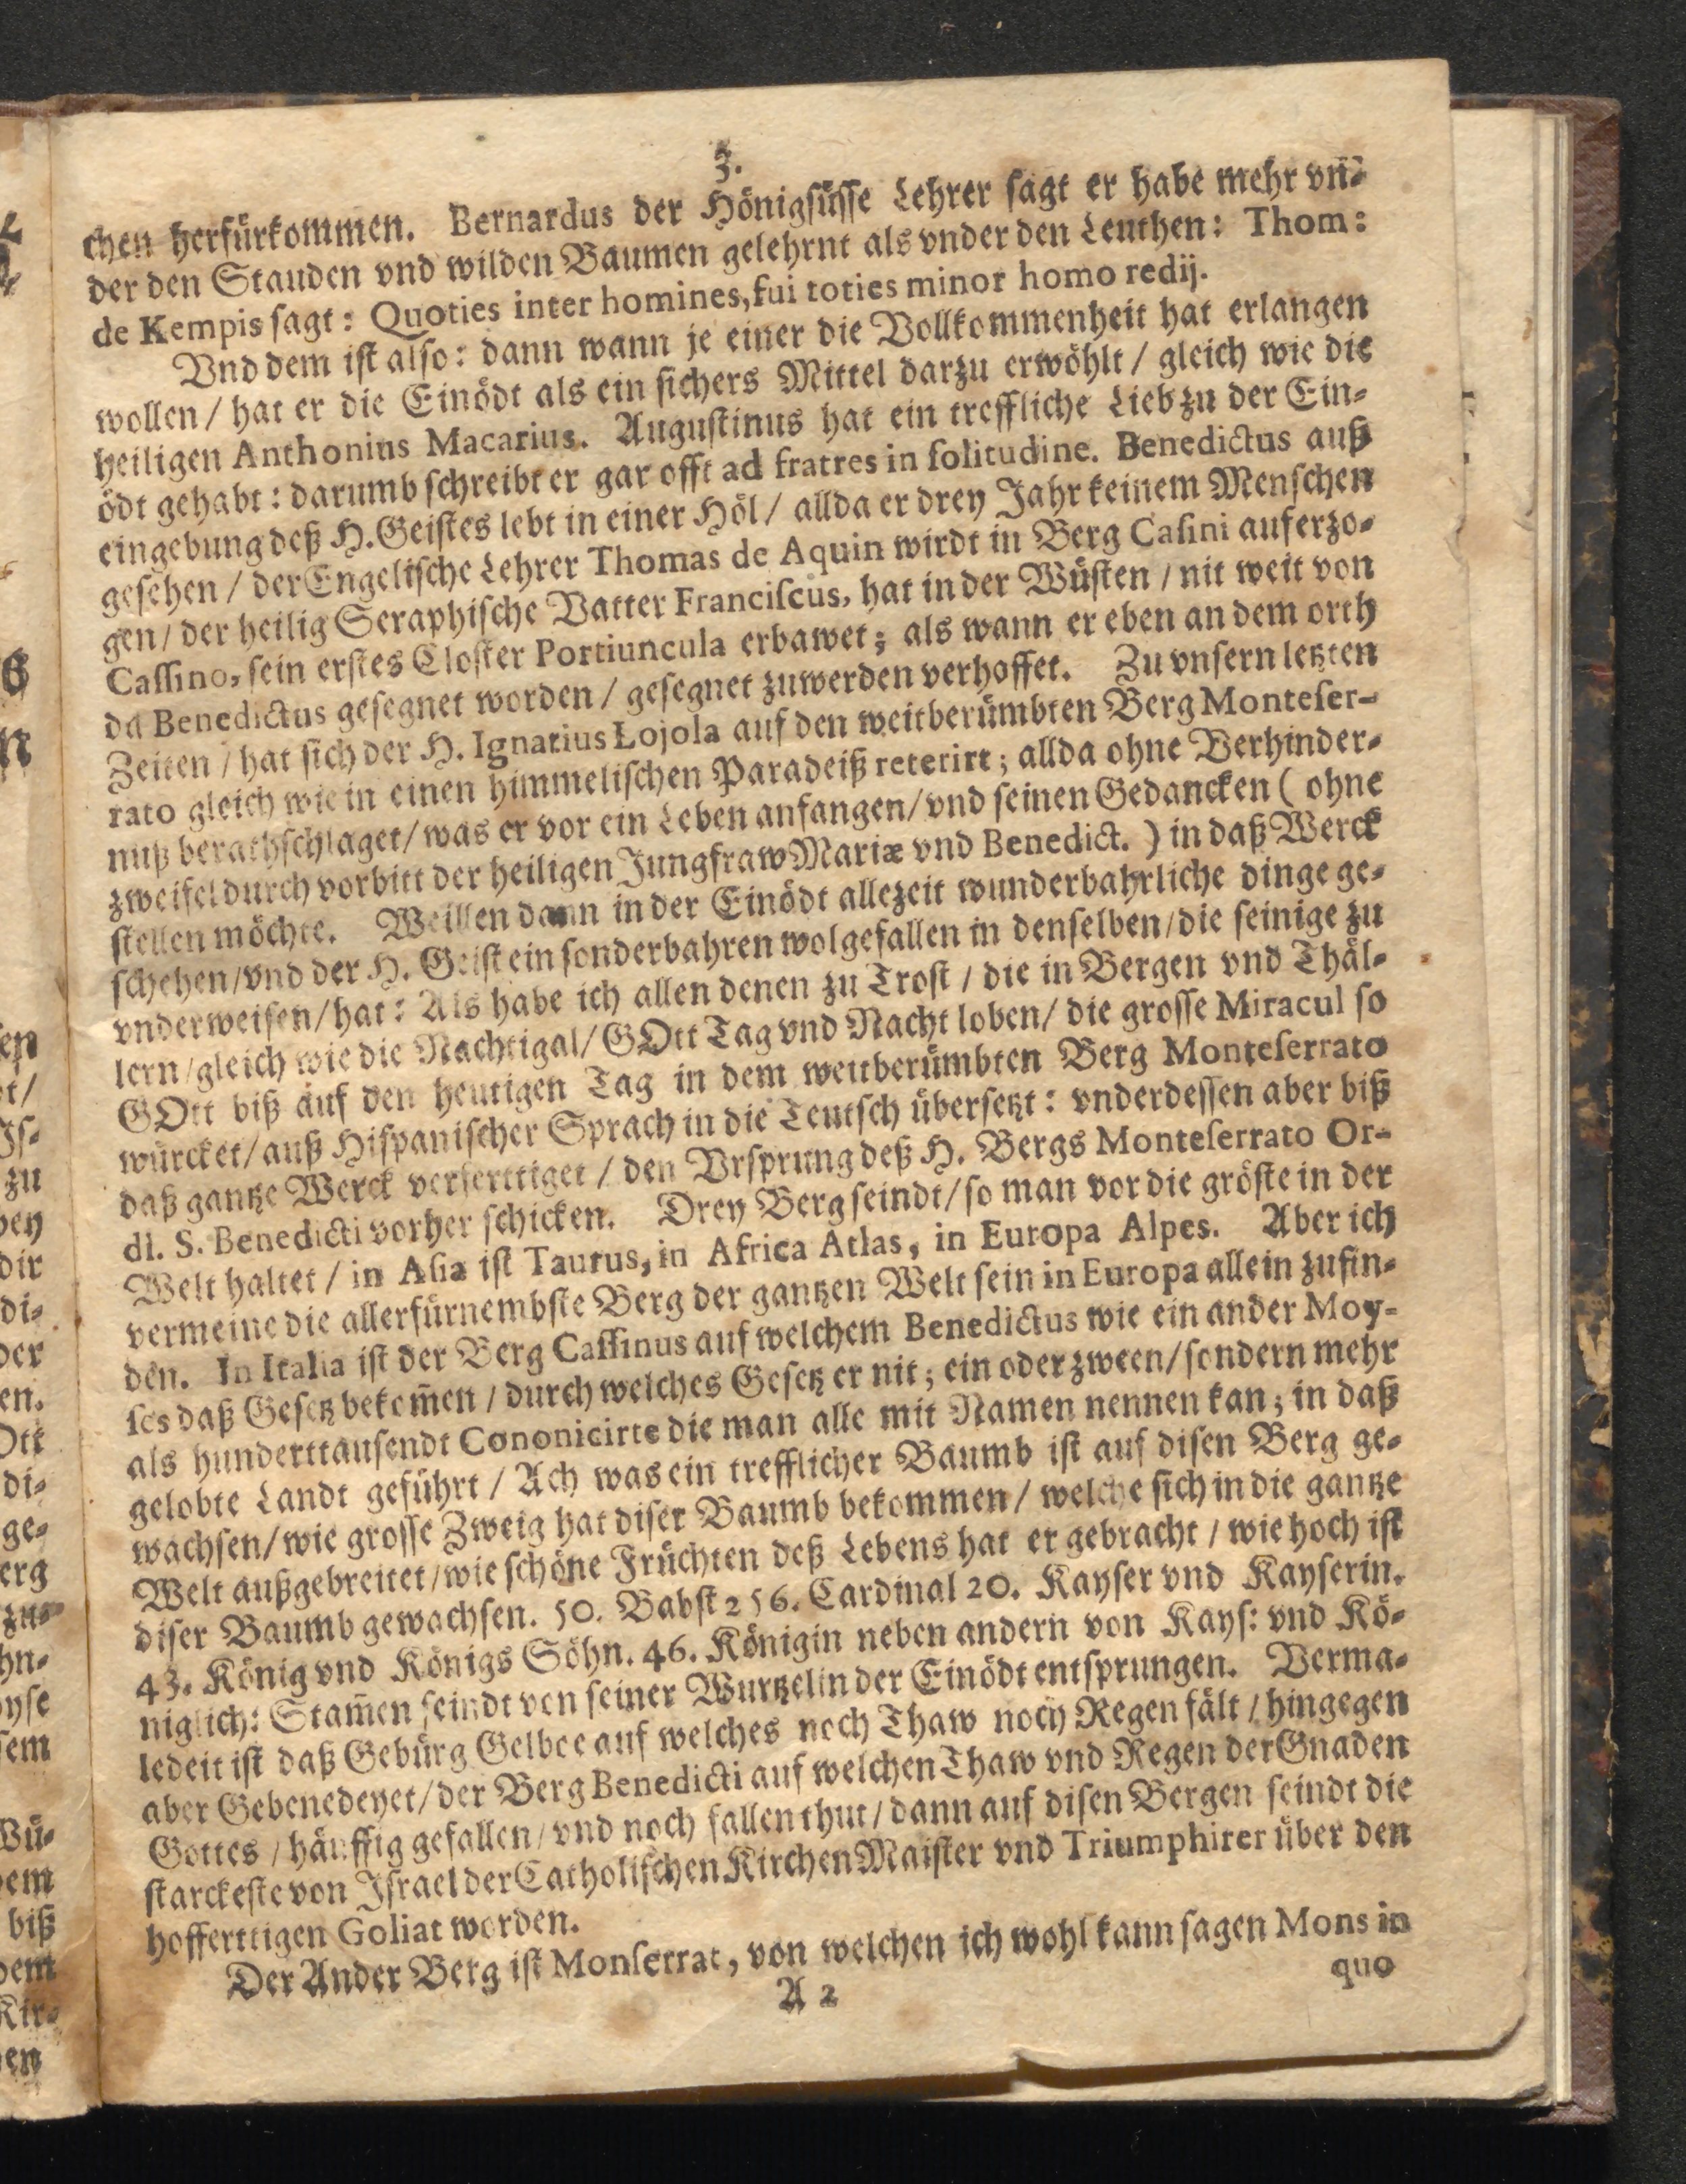 3.
chen herfürkommen. Bernardus der Hönigsüsse Lehrer sagt er habe mehr vn-
der den Stauden vnd wilden Baumen gelehrnt als vnder den Leuthen: Thom:
de Kempis sagt: Quoties inter homines, fui toties minor homo redij.
Vnd dem ist also: dann wann je einer die Vollkommenheit hat erlangen
wollen / hat er die Einödt als ein sichers Mittel darzu erwöhlt / gleich wie die
heiligen Anthonius Macarius. Augustinus hat ein treffliche Lieb zu der Ein-
ödt gehabt: darumb schreibt er gar offt ad fratres in solitudine. Benedictus auß
eingebung deß H. Geistes lebt in einer Höl / allda er drey Jahr keinem Menschen
gesehen / der Engelische Lehrer Thomas de Aquin wirdt in Berg Casini auferzo-
gen / der heilig Seraphische Vatter Franciscus, hat in der Wüsten / nit weit von
Cassino, sein erstes Closter Portiuncula erbawet; als wann er eben an dem orth
da Benedictus gesegnet worden / gesegnet zuwerden verhoffet. Zu vnsern letzten
Zeiten / hat sich der H. Ignatius Lojola auf den weitberümbten Berg Monteser-
rato gleich wie in einen himmelischen Paradeiß reterirt; allda ohne Verhinder-
nuß berathschlaget / was er vor ein Leben anfangen / vnd seinen Gedancken ( ohne
zweifel durch vorbitt der heiligen Jungfraw Mariæ vnd Benedict. ) in daß Werck
stellen möchte. Weillen dann in der Einödt allezeit wunderbahrliche dinge ge-
schehen / vnd der H. Geist ein sonderbahren wolgefallen in denselben / die seinige zu
vnderweisen / hat: Als habe ich allen denen zu Trost / die in Bergen vnd Thäl-
lern / gleich wie die Nachtigal / GOtt Tag vnd Nacht loben / die grosse Miracul so
GOtt biß auf den heutigen Tag in dem weitberümbten Berg Monteserrato
würcket / auß Hispanischer Sprach in die Teutsch übersetzt: vnderdessen aber biß
daß gantze Werck verferttiget / den Vrsprung deß H. Bergs Monteserrato Or-
dl. S. Benedicti vorher schicken. Drey Berg seindt / so man vor die gröste in der
Welt haltet / in Asia ist Taurus, in Africa Atlas, in Europa Alpes. Aber ich
vermeine die allerfürnembste Berg der gantzen Welt sein in Europa allein zufin-
den. In Italia ist der Berg Cassinus auf welchem Benedictus wie ein ander Moy-
ses daß Gesetz bekom̃en / durch welches Gesetz er nit; ein oder zween / sondern mehr
als hunderttausendt Cononicirte die man alle mit Namen nennen kan; in daß
gelobte Landt geführt / Ach was ein trefflicher Baumb ist auf disen Berg ge-
wachsen / wie grosse Zweig hat diser Baumb bekommen / welche sich in die gantze
Welt außgebreitet / wie schöne Früchten deß Lebens hat er gebracht / wie hoch ist
diser Baumb gewachsen. 50. Babst 256. Cardinal 20. Kayser vnd Kayserin.
43. König vnd Königs Söhn. 46. Königin neben andern von Kays: vnd Kö-
niglich: Stam̃en seindt von seiner Wurtzel in der Einödt entsprungen. Verma-
ledeit ist daß Gebürg Gelboe auf welches noch Thaw noch Regen fält / hingegen
aber Gebenedeyet / der Berg Benedicti auf welchen Thaw vnd Regen der Gnaden
Gottes / häuffig gefallen / vnd noch fallen thut / dann auf disen Bergen seindt die
starckeste von Israel der Catholischen Kirchen Maister vnd Triumphirer über den
hofferttigen Goliat worden.
Der Ander Berg ist Monserrat, von welchen ich wohl kann sagen Mons in
A 2
quo